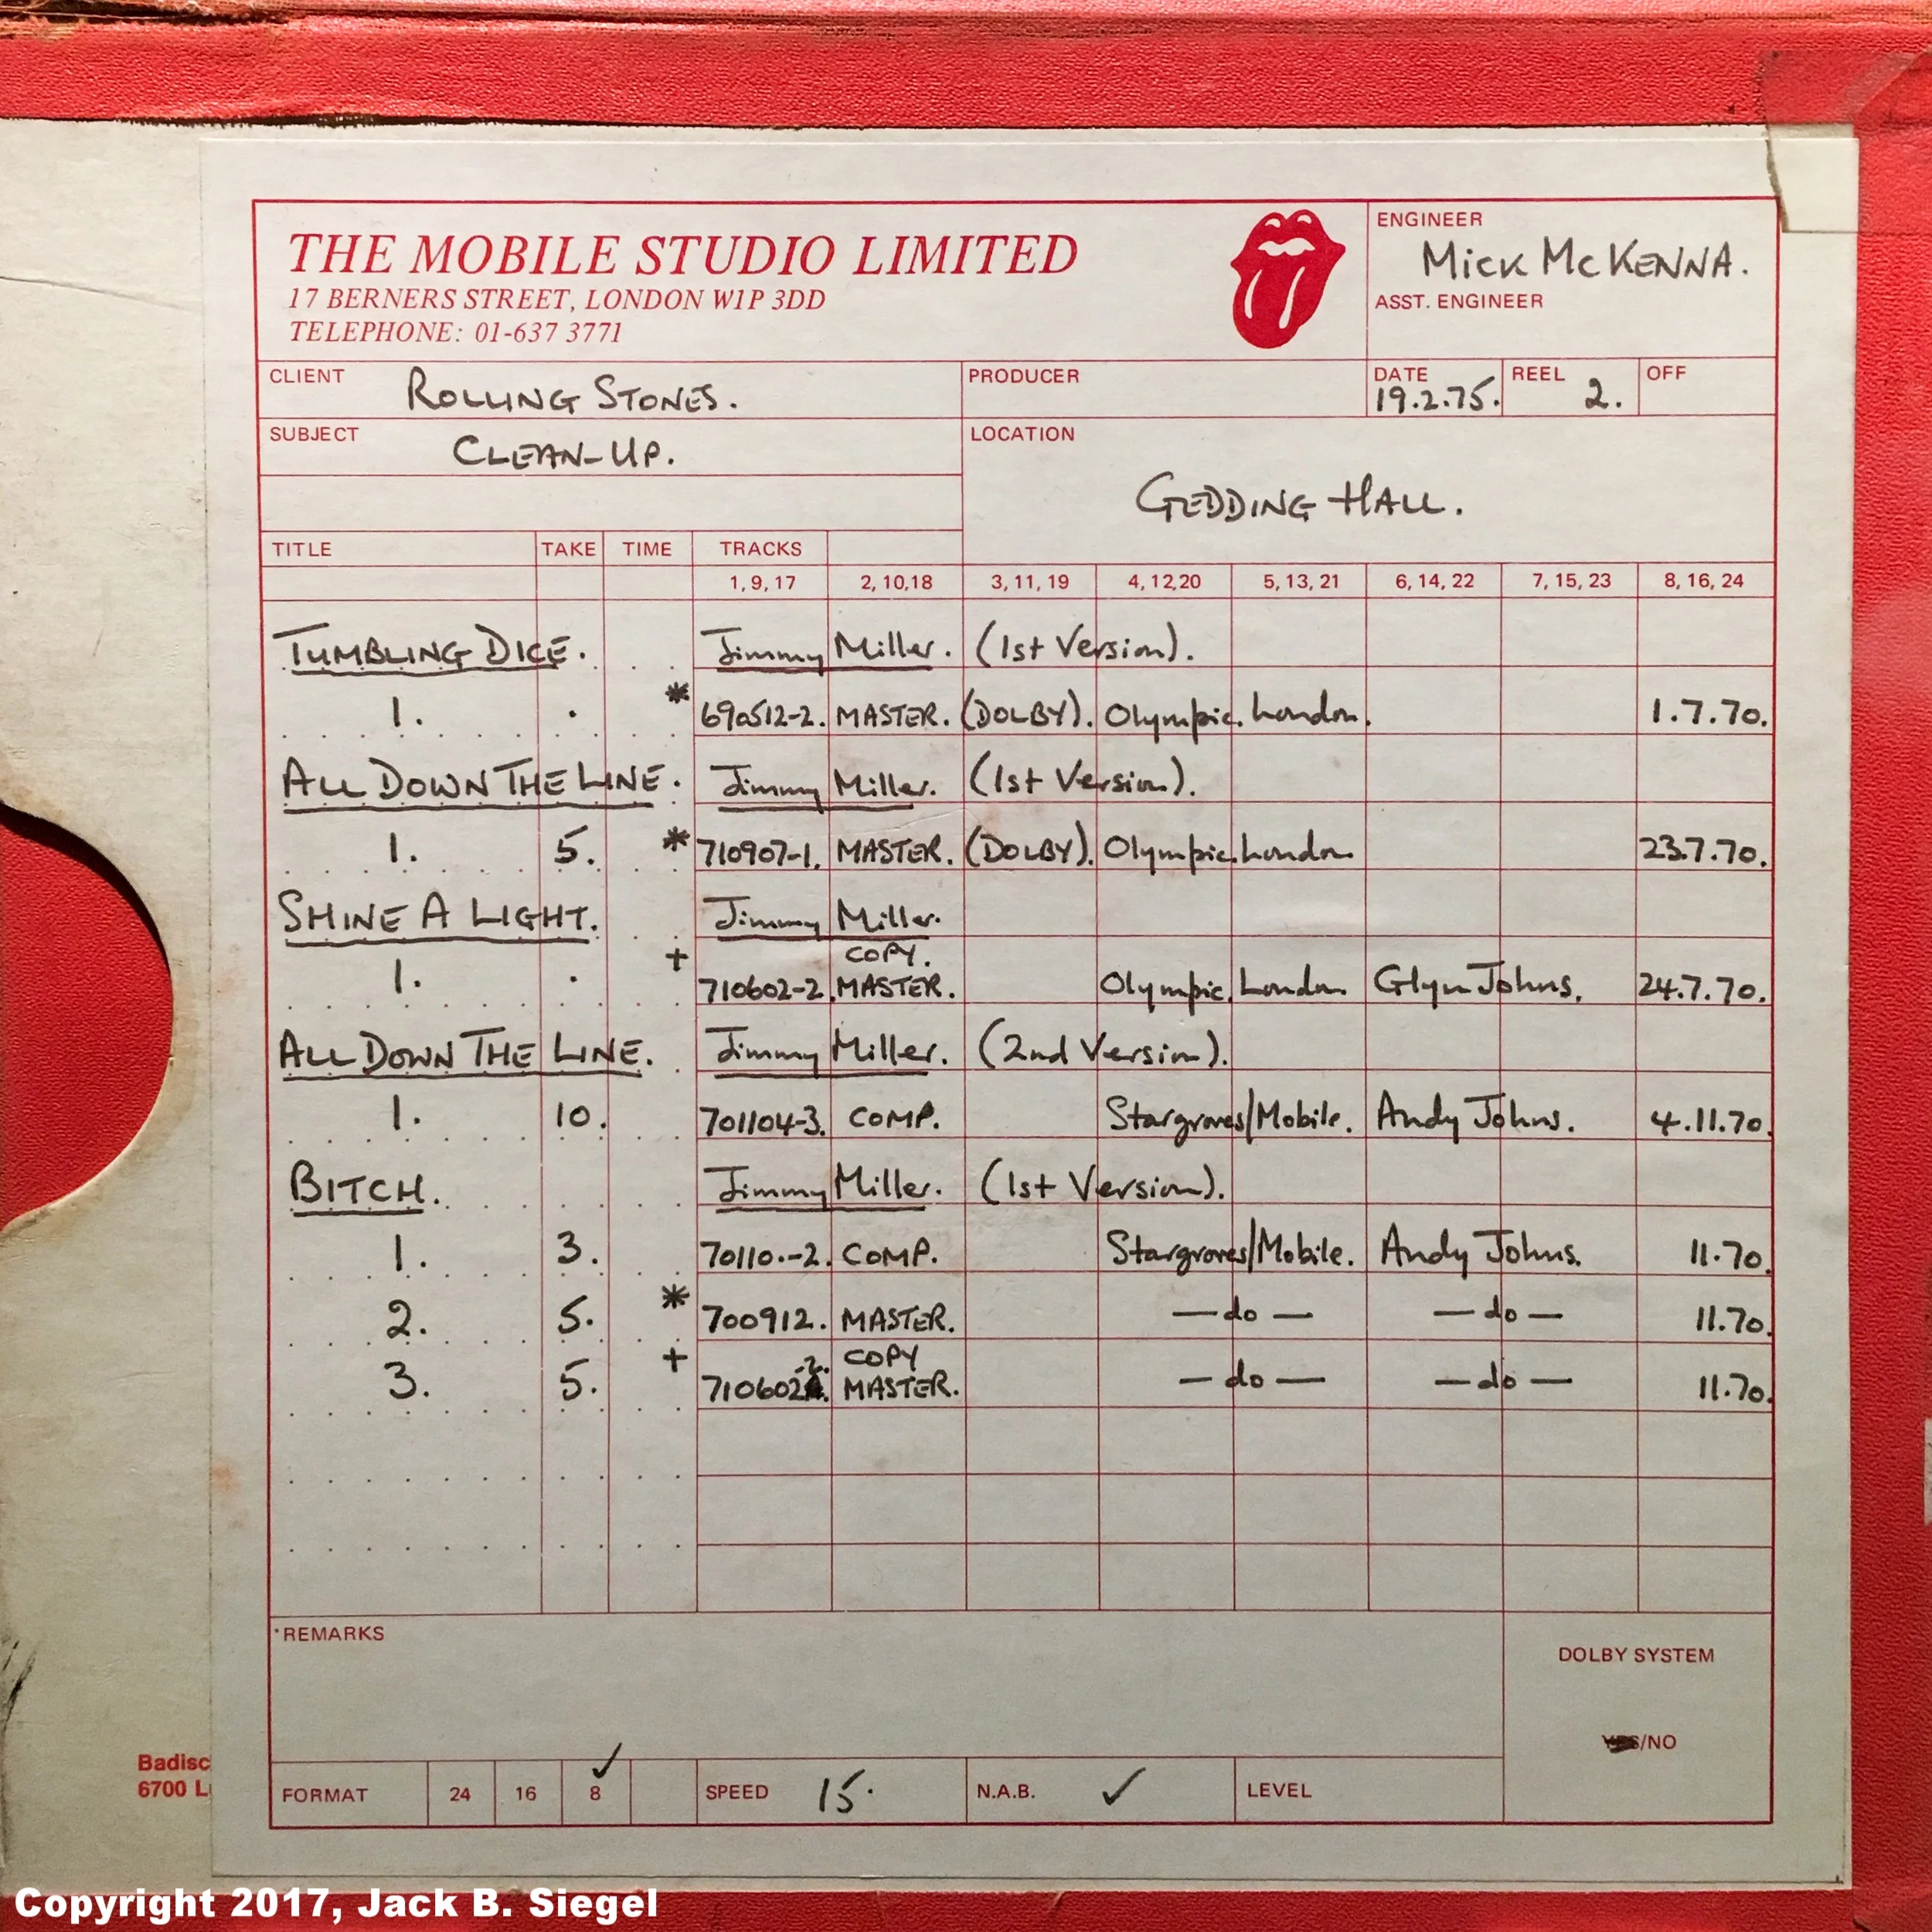 THE MOBILE STUDIO LIMITED
17 BERNERS STREET, LONDON W1P 3DD
TELEPHONE: 01-637 3771
ENGINEER
Mick McKENNA.
ASST. ENGINEER
CLIENT ROLLING STONES.
PRODUCER
DATE 19.2.75.
REEL 2.
OFF
SUBJECT CLEAN-UP.
LOCATION
GEDDING HALL.
TITLE TAKE TIME TRACKS
1, 9, 17 2, 10, 18 3, 11, 19 4, 12, 20 5, 13, 21 6, 14, 22 7, 15, 23 8, 16, 24
TUMBLING DICE. Jimmy Miller. (1st Version).
1. . * 690512-2. MASTER. (DOLBY). Olympic. London. 1.7.70.
ALL DOWN THE LINE. Jimmy Miller. (1st Version).
1. 5. * 710907-1. MASTER. (DOLBY). Olympic. London 23.7.70.
SHINE A LIGHT. Jimmy Miller.
COPY.
1. . + 710602-2. MASTER. Olympic. London Glyn Johns. 24.7.70.
ALL DOWN THE LINE. Jimmy Miller. (2nd Version).
1. 10. 701104-3. COMP. Stargroves/Mobile. Andy Johns. 4.11.70.
BITCH. Jimmy Miller. (1st Version).
1. 3. 70110.-2. COMP. Stargroves/Mobile. Andy Johns. 11.70.
2. 5. * 700912. MASTER. — do — — do — 11.70.
COPY
3. 5. + 710602-2. MASTER. — do — — do — 11.70.
*REMARKS
DOLBY SYSTEM
YES/NO
FORMAT 24 16 8 ✓ SPEED 15. N.A.B. ✓ LEVEL
Badisc
6700 L
Copyright 2017, Jack B. Siegel